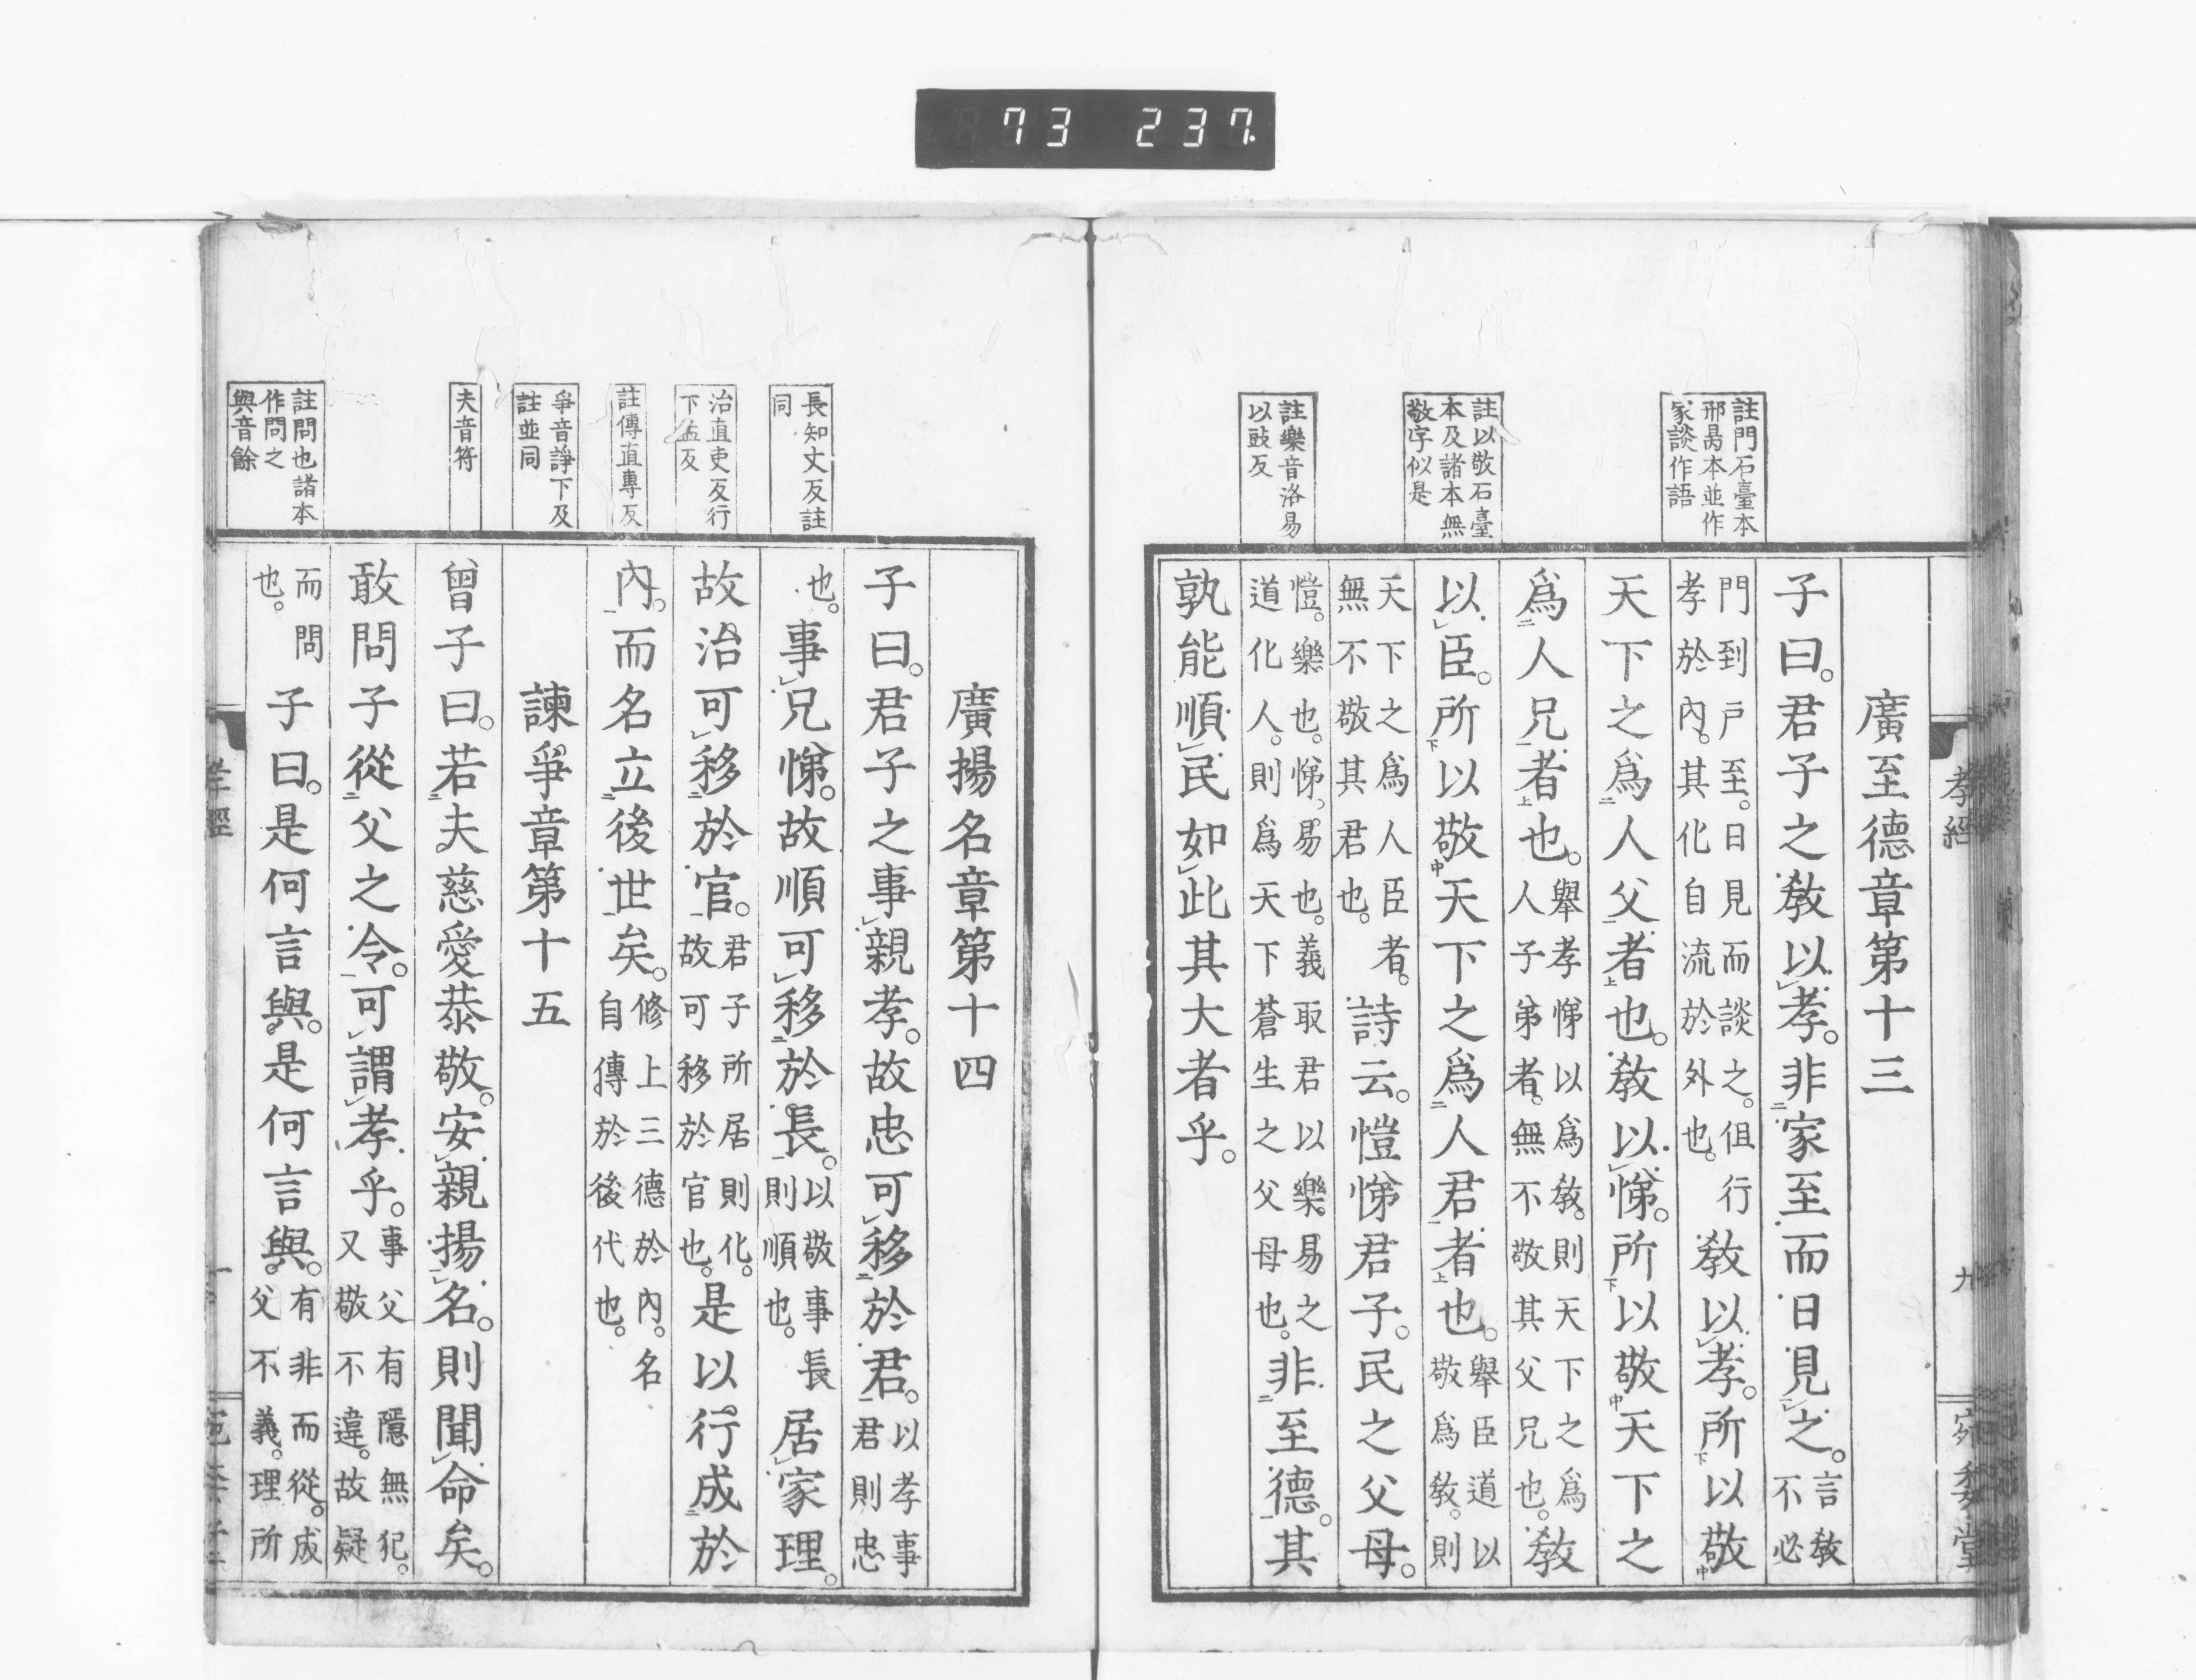 73 237
註門石臺本
邢昺本並作
家談作語
註以敬石臺
本及諸本無
敬字似是
註樂音洛易
以豉反
孝經
九
廣至德章第十三
子曰。君子之敎以孝。非家至而日見之。言敎不必
門到戶至。日見而談之。但行孝於內。其化自流於外也。敎以孝。所以敬
天下之爲人父者也。敎以悌。所以敬天下之
爲人兄者也。舉孝悌以爲敎。則天下之爲人子弟者。無不敬其父兄也。敎
以臣。所以敬天下之爲人君者也。舉臣道以敬爲敎。則
天下之爲人臣者。無不敬其君也。詩云。愷悌君子。民之父母。
愷。樂也。悌。易也。義取君以樂易之道化人。則爲天下蒼生之父母也。非至德。其
孰能順民如此其大者乎。
長知丈反註
同
治直吏反行
下孟反
註傳直專反
爭音諍下及
註並同
夫音符
註問也諸本
作問之
與音餘
廣揚名章第十四
子曰。君子之事親孝。故忠可移於君。以孝事君則忠
也。事兄悌。故順可移於長。以敬事長則順也。居家理。
故治可移於官。君子所居則化。故可移於官也。是以行成於
內。而名立後世矣。修上三德於內。名自傳於後代也。
諫爭章第十五
曾子曰。若夫慈愛恭敬。安親揚名。則聞命矣。
敢問子從父之令。可謂孝乎。事父有隱無犯。又敬不違。故疑
而問也。子曰。是何言與。是何言與。有非而從。成父不義。理所